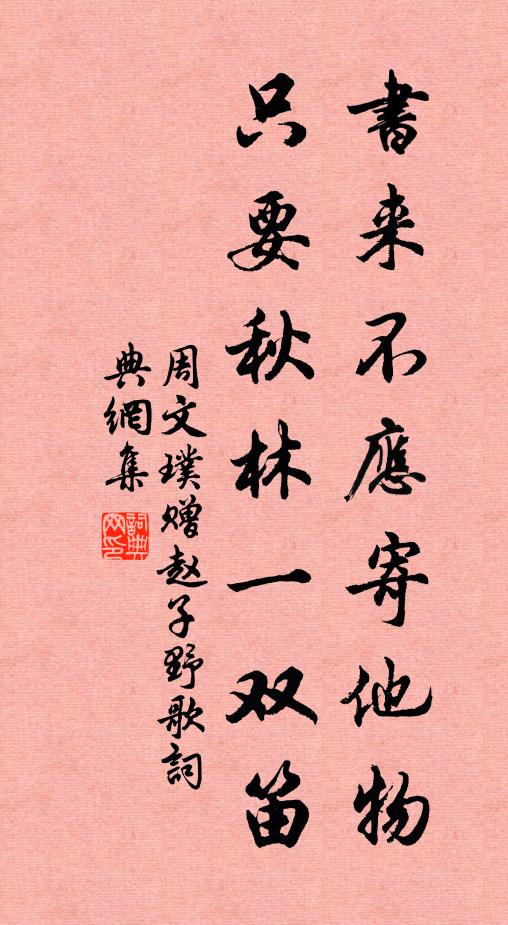 書来不應寄他物
只要秋林一双笛
周文璞赠赵子野歌詞
典網集
詞典网印